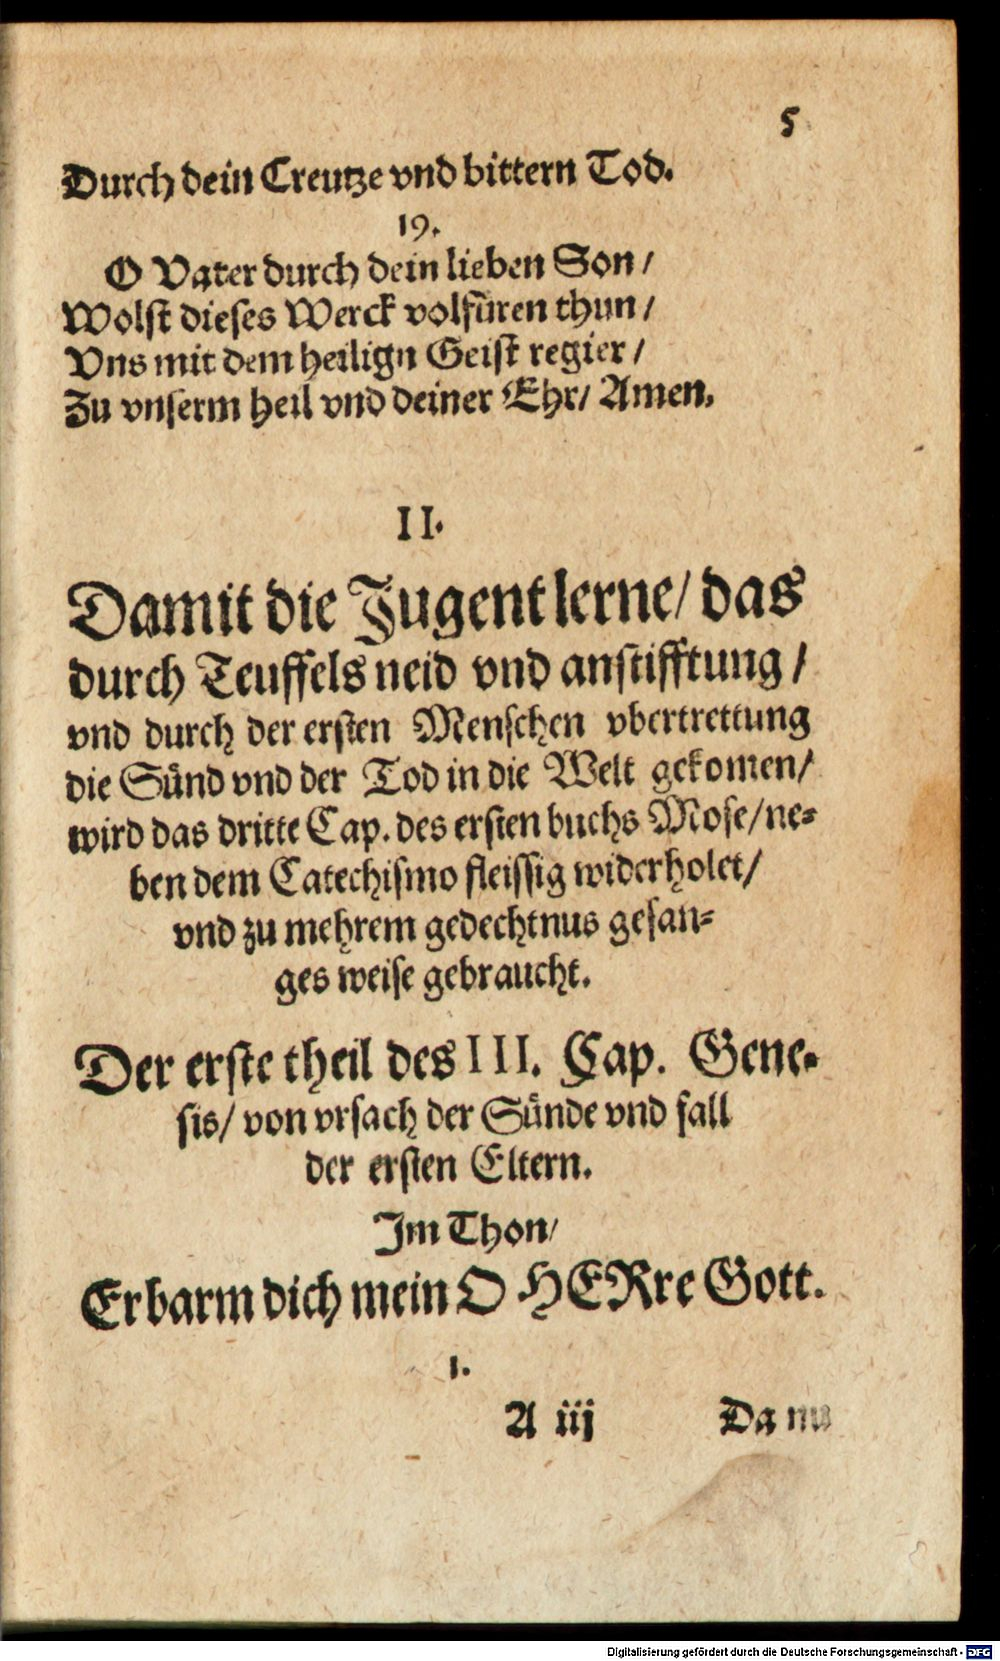 5
Durch dein Creutze vnd bittern Tod.
19.
O Vater durch dein lieben Son /
Wolst dieses Werck volfüren thun /
Vns mit dem heilign Geist regier /
Zu vnserm heil vnd deiner Ehr / Amen.
II.
Damit die Jugent lerne / das
durch Teuffels neid vnd anstifftung /
vnd durch der ersten Menschen vbertrettung
die Sünd vnd der Tod in die Welt gekomen /
wird das dritte Cap. des ersten buchs Mose / ne=
ben dem Catechismo fleissig widerholet /
vnd zu mehrem gedechtnus gesan=
ges weise gebraucht.
Der erste theil des III. Cap. Gene=
sis / von vrsach der Sünde vnd fall
der ersten Eltern.
Im Thon /
Erbarm dich mein O HERre Gott.
1.
A iij Da nu
Digitalisierung gefördert durch die Deutsche Forschungsgemeinschaft - DFG